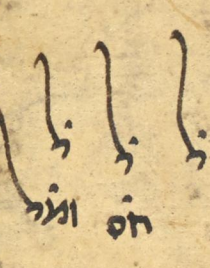 לׄ לׄ לׄ
חסׄ ומלׄ